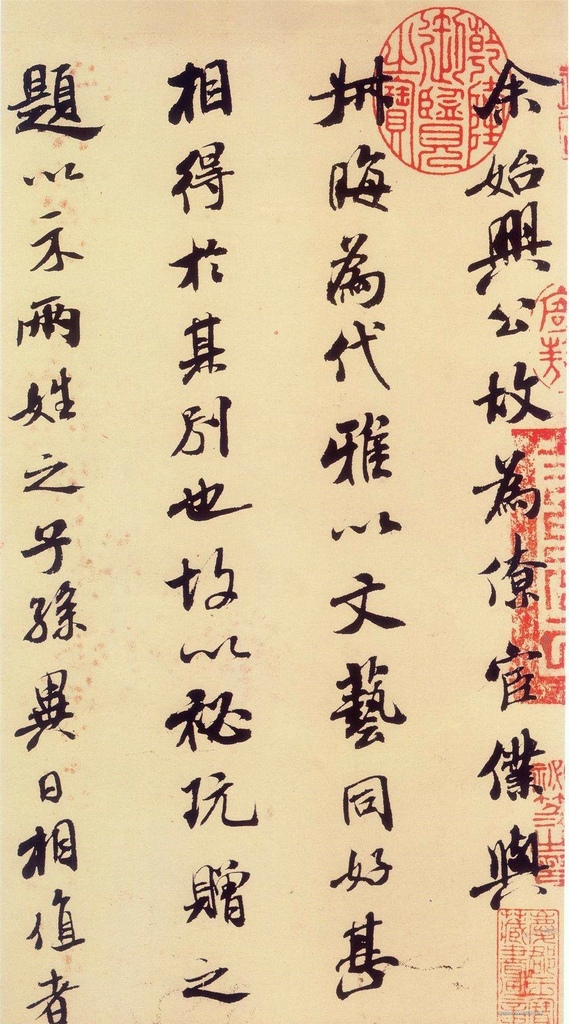 乾隆御覽之寶
余始興公故為僚宦僕與
叔晦為代雅以文藝同好甚
相得於其別也故以秘玩贈之
題以示兩姓之子孫異日相值者